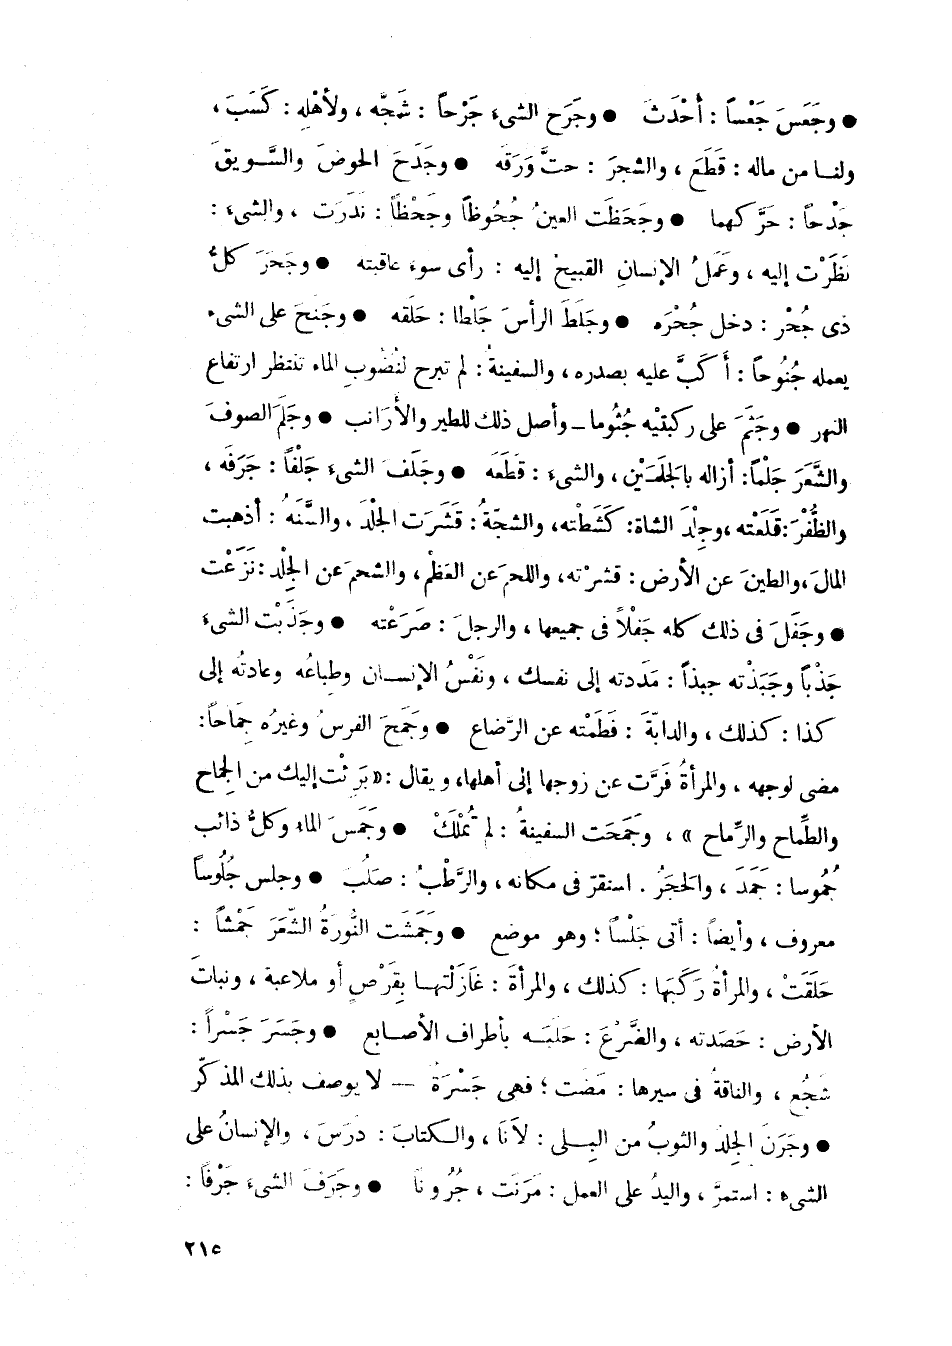 ● وجَعَسَ جَعْساً : أحْدَثَ ● وجَرَح الشىءَ جَرْحاً : شَجَّه ، ولأهْلِه : كَسَبَ ،
ولنا من ماله : قَطَعَ ، والشجرَ : حتَّ وَرَقَه ● وجَدَحَ الحوضَ والسَّويقَ
جَدْحاً : حَرَّكهما ● وجَحَظَت العينُ جُحُوظاً وجَحْظاً : نَدَرَت ، والشىءَ :
نَظَرْت إليه ، وعَمَلُ الإنسانِ القبيحُ إليه : رأى سوءَ عاقبته ● وجَحَرَ كلُّ
ذى جُحْر : دخل جُحْرَه ● وجَلَطَ الرأسَ جَلْطا : حَلَقه ● وجَنَحَ على الشىء
يعمله جُنُوحاً : أكَبَّ عليه بصدره ، والسفينةُ : لم تبرح لنُضُوبِ الماء تنتظر ارتفاع
النهر ● وجَثَمَ على ركبتيْه جُثُوما ــ وأصل ذلك للطير والأَرَانب ● وجَلَمَ الصوفَ
والشَّعَرَ جَلْماً: أزاله بالجَلَمَيْن ، والشىءَ : قَطَعَه ● وجَلَفَ الشىءَ جَلْفاً : جَرَفَه ،
والظُّفْرَ: قَلَعْته ، وجِلْدَ الشاة: كَشَطْته، والشجّةُ : قَشَرَت الجِلْدَ ، والسَّنَةُ : أذهبت
المالَ ، والطينَ عن الأرض : قشرْته، واللحمَ عن العَظْم ، والشحمَ عن الجِلْد: نَزَعْت
● وجَفَلَ فى ذلك كله جَفْلاً فى جميعها ، والرجلَ : صَرَعْته ● وجَذَبْت الشىءَ
جَذْباً وجَبَذْته جبذاً : مَدَدته إلى نفسك ، ونَفْسُ الإنسان وطِباعُه وعادتُه إلى
كذا : كذلك ، والدابّةَ : فَطَمْته عن الرَّضاع ● وجَمَحَ الفرسُ وغيرُه جِمَاحاً:
مضى لوجهه ، والمرأةُ فَرَّت عن زوجها إلى أهلها، ويقال : «بَرِئْت إليك من الجِماح
والطِّماح والرِّماح » ، وجَمَحَت السفينةُ : لم تُمْلَكْ ● وجَمَسَ الماءُ وكلُّ ذائب
جُمُوسا : جَمَدَ ، والحجَرُ . استقرّ فى مكانه ، والرَّطْبُ : صلُبَ ● وجلس جُلُوساً
معروف ، وأيضاً : أتى جَلْساً ؛ وهو موضع ● وجَمَشَت النُّورَةُ الشَّعَرَ جَمْشاً :
حَلَقَتْ ، والمرأةُ رَكَبَها : كذلك ، والمرأةَ : غَازَلْتها بِقَرْصٍ أو ملاعبة ، ونباتَ
الأرض : حَصَدته ، والضَّرْعَ : حَلَبَه بأطراف الأصابع ● وجَسَرَ جَسْراً :
شَجُع ، والناقةُ فى سيرها : مَضَت ؛ فهى جَسْرَةٌ — لا يوصف بذلك المذكّر
● وجَرَنَ الجِلدُ والثوبُ من البِلى : لاَنَا ، والكتابَ : درَسَ ، والإنسانُ على
الشىء : استمرَّ ، واليدُ على العمل : مَرَنَت ، جُرُونًا ● وجَرَفَ الشىءَ جَرْفاً :
٢١٥